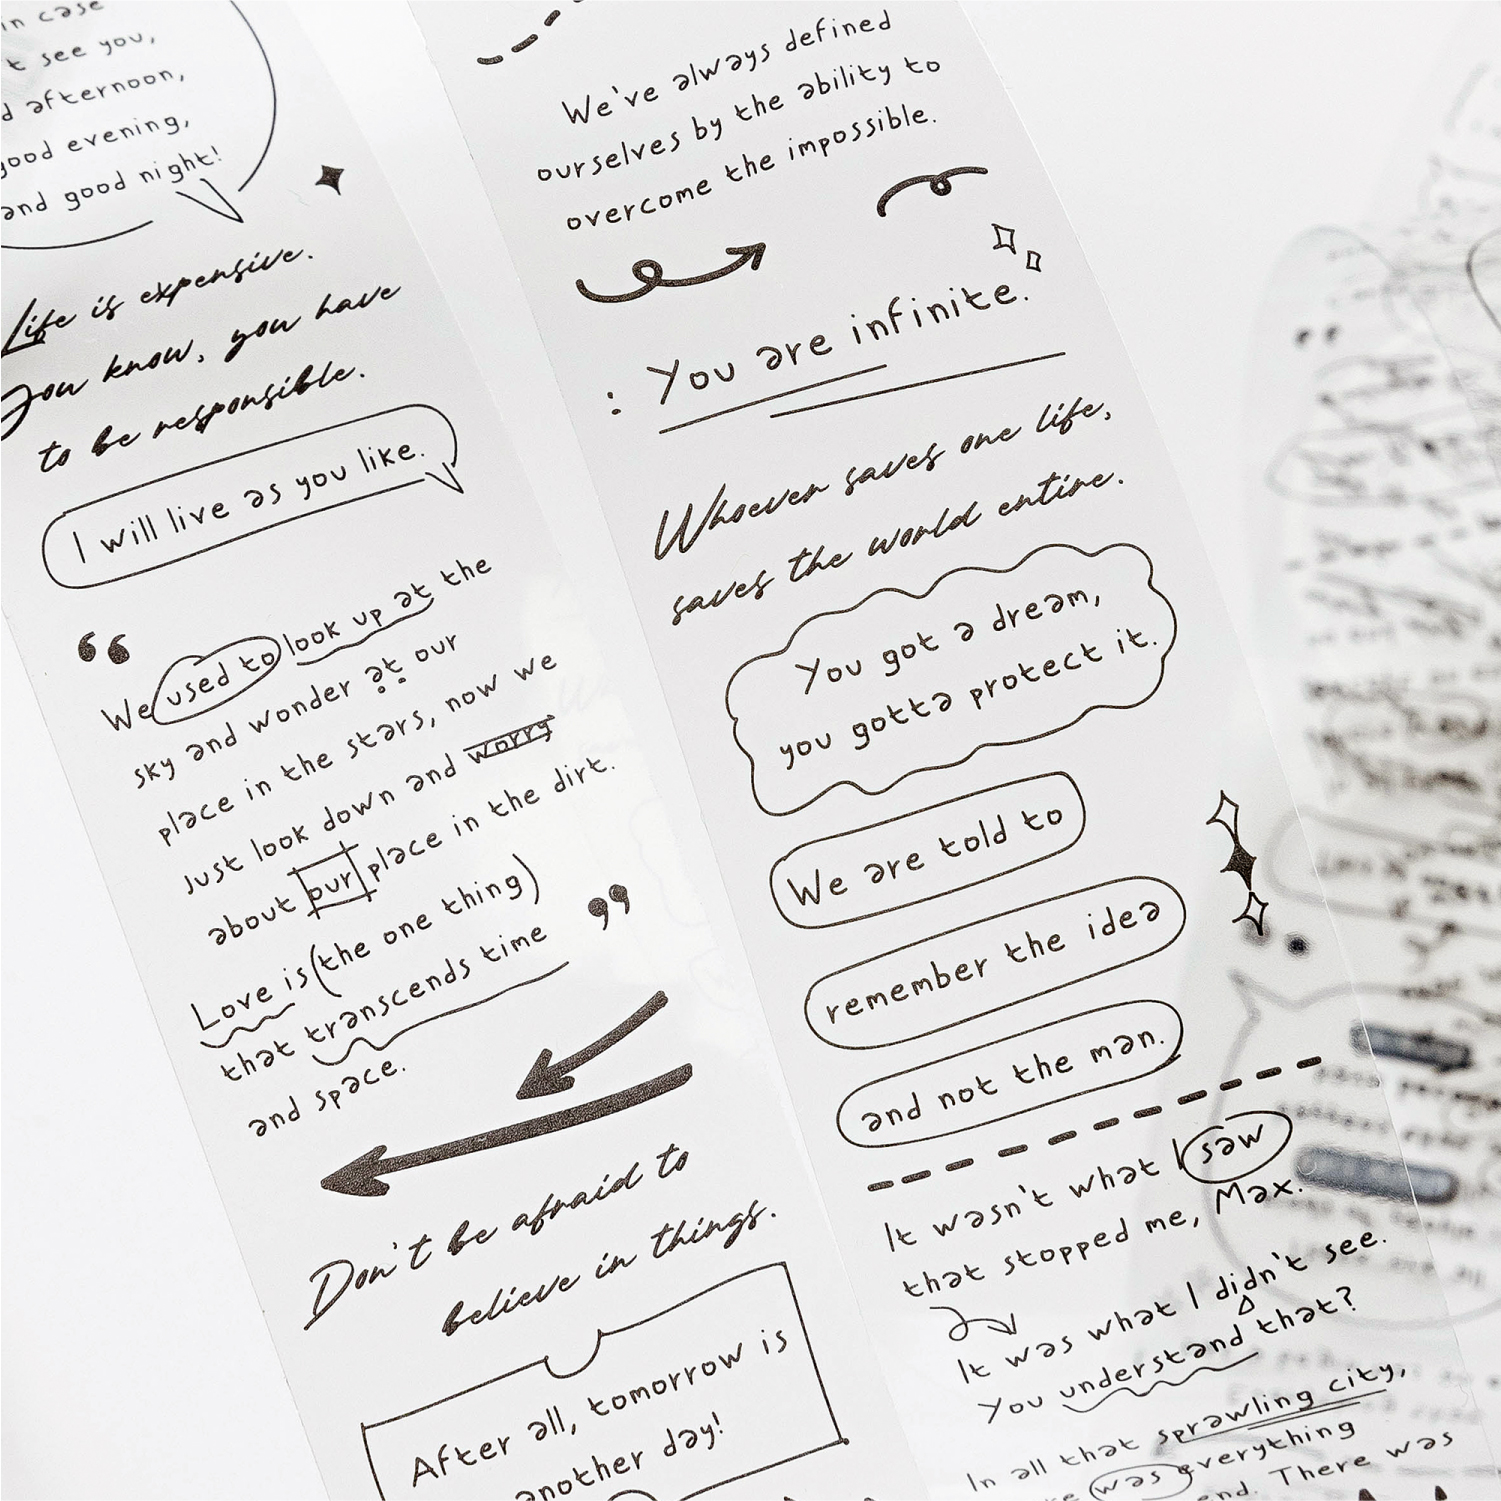 in case
t see you,
d afternoon,
good evening,
and good night!
Life is expensive.
You know, you have
to be responsible.
I will live as you like.
“
We used to look up at the
sky and wonder at our
place in the stars, now we
just look down and worry
about our place in the dirt.
Love is (the one thing)
that transcends time
and space.
”
Don't be afraid to
believe in things.
After all, tomorrow is
another day!
We've always defined
ourselves by the ability to
overcome the impossible.
: You are infinite.
Whoever saves one life,
saves the world entire.
You got a dream,
you gotta protect it.
We are told to
remember the idea
and not the man.
It wasn't what I saw
that stopped me, Max.
It was what I didn't see.
You understand that?
In all that sprawling city,
was everything
end. There was